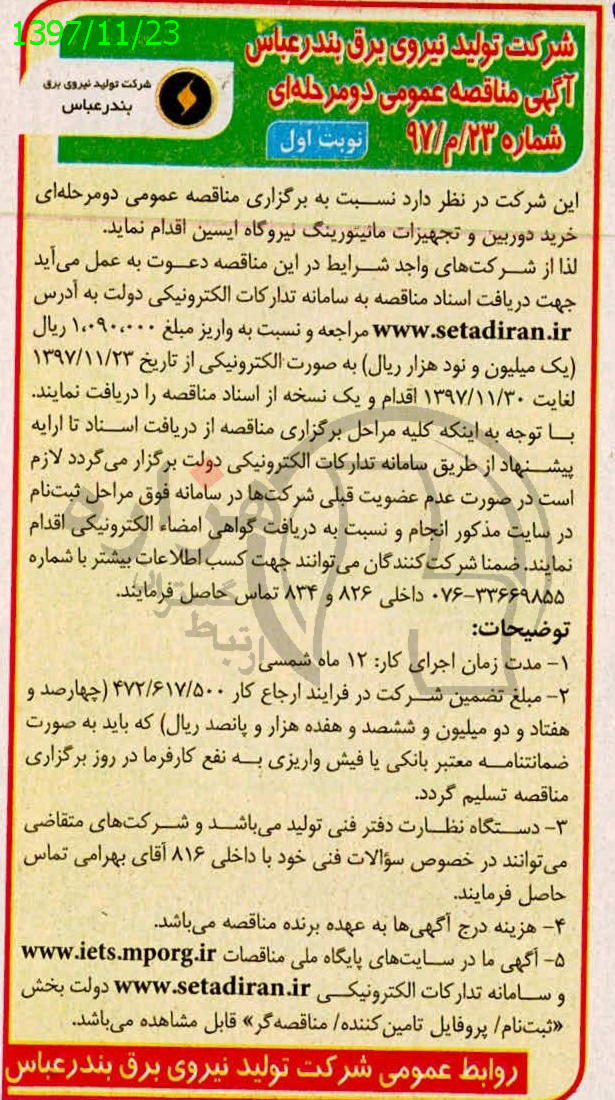 1397/11/23
شرکت تولید نیروی برق بندرعباس
آگهی مناقصه عمومی دومرحله‌ای
شماره ۲۳/م/۹۷
نوبت اول
شرکت تولید نیروی برق
بندرعباس
این شرکت در نظر دارد نسبت به برگزاری مناقصه عمومی دومرحله‌ای
خرید دوربین و تجهیزات مانیتورینگ نیروگاه ایسین اقدام نماید.
لذا از شرکت‌های واجد شرایط در این مناقصه دعوت به عمل می‌آید
جهت دریافت اسناد مناقصه به سامانه تدارکات الکترونیکی دولت به آدرس
www.setadiran.ir مراجعه و نسبت به واریز مبلغ ۱،۰۹۰،۰۰۰ ریال
(یک میلیون و نود هزار ریال) به صورت الکترونیکی از تاریخ ۱۳۹۷/۱۱/۲۳
لغایت ۱۳۹۷/۱۱/۳۰ اقدام و یک نسخه از اسناد مناقصه را دریافت نمایند.
با توجه به اینکه کلیه مراحل برگزاری مناقصه از دریافت اسناد تا ارایه
پیشنهاد از طریق سامانه تدارکات الکترونیکی دولت برگزار می‌گردد لازم
است در صورت عدم عضویت قبلی شرکت‌ها در سامانه فوق مراحل ثبت‌نام
در سایت مذکور انجام و نسبت به دریافت گواهی امضاء الکترونیکی اقدام
نمایند. ضمنا شرکت‌کنندگان می‌توانند جهت کسب اطلاعات بیشتر با شماره
۰۷۶-۳۳۶۶۹۸۵۵ داخلی ۸۲۶ و ۸۳۴ تماس حاصل فرمایند.
توضیحات:
۱- مدت زمان اجرای کار: ۱۲ ماه شمسی
۲- مبلغ تضمین شرکت در فرایند ارجاع کار ۴۷۲/۶۱۷/۵۰۰ (چهارصد و
هفتاد و دو میلیون و ششصد و هفده هزار و پانصد ریال) که باید به صورت
ضمانتنامه معتبر بانکی یا فیش واریزی به نفع کارفرما در روز برگزاری
مناقصه تسلیم گردد.
۳- دستگاه نظارت دفتر فنی تولید می‌باشد و شرکت‌های متقاضی
می‌توانند در خصوص سؤالات فنی خود با داخلی ۸۱۶ آقای بهرامی تماس
حاصل فرمایند.
۴- هزینه درج آگهی‌ها به عهده برنده مناقصه می‌باشد.
۵- آگهی ما در سایت‌های پایگاه ملی مناقصات www.iets.mporg.ir
و سامانه تدارکات الکترونیکی www.setadiran.ir دولت بخش
«ثبت‌نام/ پروفایل تامین‌کننده/ مناقصه‌گر» قابل مشاهده می‌باشد.
روابط عمومی شرکت تولید نیروی برق بندرعباس
هزاره
ارتباط